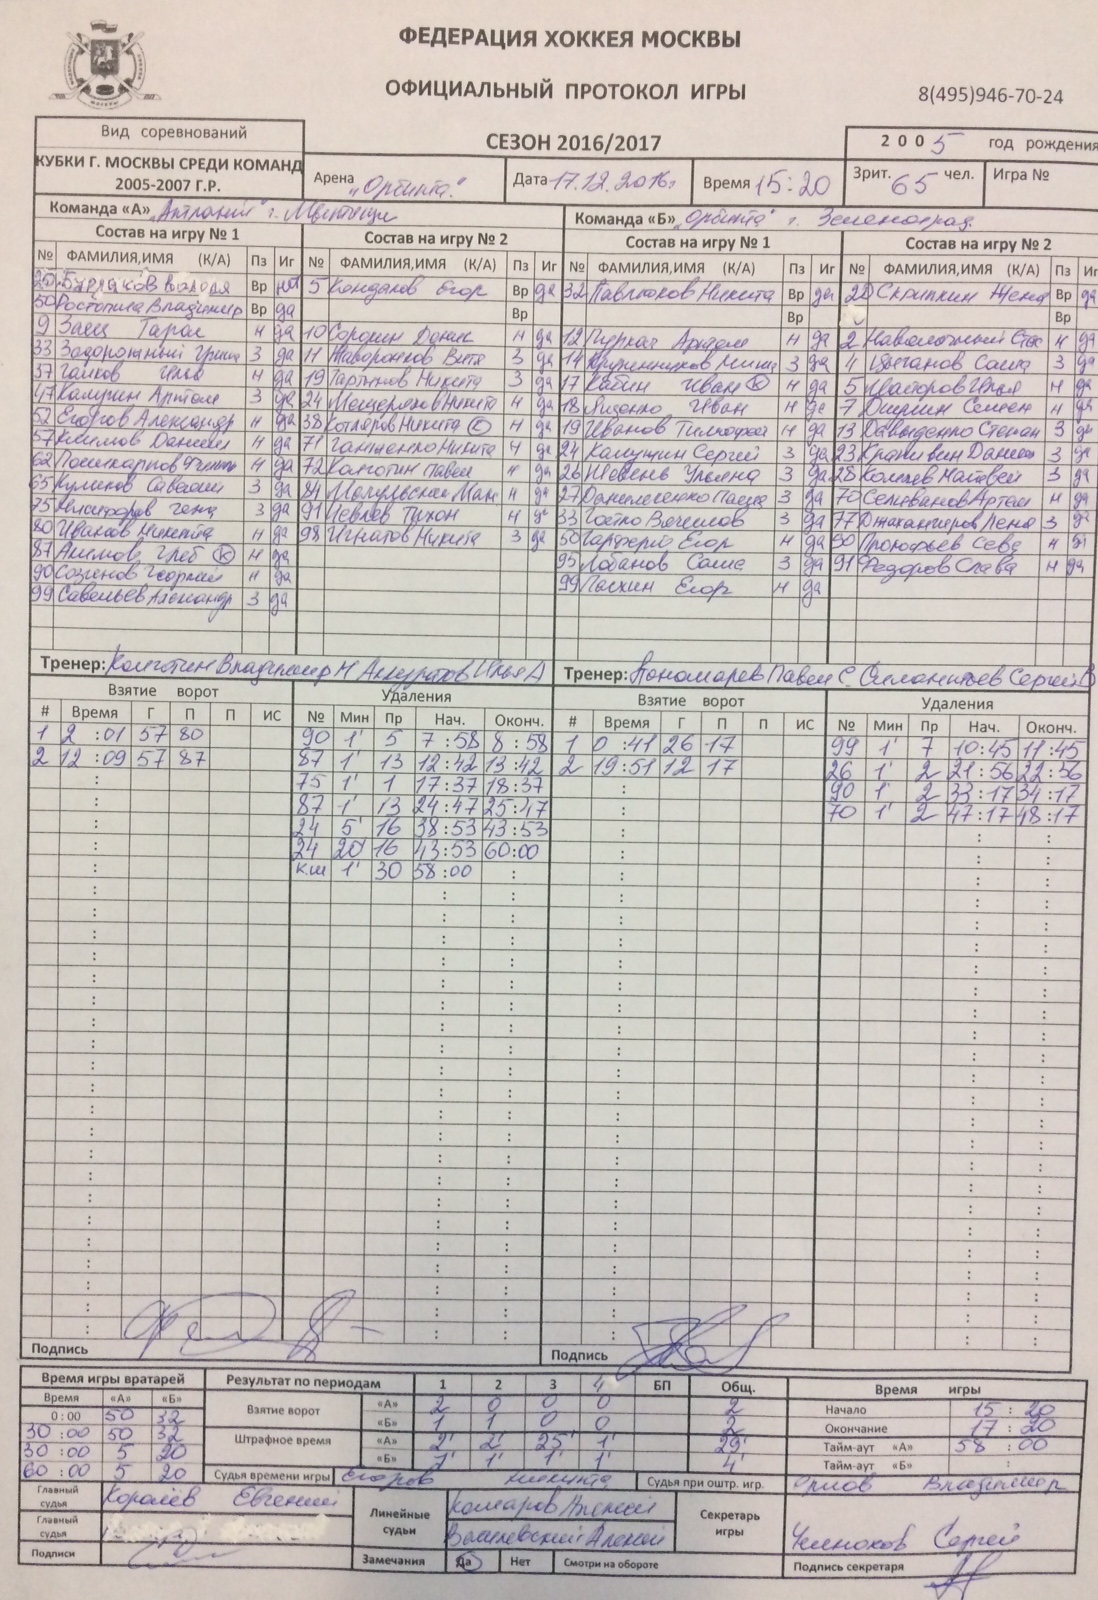 ФЕДЕРАЦИЯ ХОККЕЯ МОСКВЫ
ОФИЦИАЛЬНЫЙ ПРОТОКОЛ ИГРЫ
8(495)946-70-24
Вид соревнований
КУБКИ Г. МОСКВЫ СРЕДИ КОМАНД
2005-2007 Г.Р.
СЕЗОН 2016/2017
2005 год рождения
Арена „Орбита" Дата 17.12.2016г Время 15:20 Зрит. 65 чел. Игра №
Команда «А» г. Мытищи Команда «Б» „Орбита" г. Зеленоград
Состав на игру № 1 Состав на игру № 2 Состав на игру № 1 Состав на игру № 2
№ ФАМИЛИЯ,ИМЯ (К/А) Пз Иг № ФАМИЛИЯ,ИМЯ (К/А) Пз Иг № ФАМИЛИЯ,ИМЯ (К/А) Пз Иг № ФАМИЛИЯ,ИМЯ (К/А) Пз Иг
Вр нет 5 Кондаков Егор Вр да 32 Никита Вр да 20 Скрипкин Жена Вр да
50 Владимир Вр да Вр Вр Вр
9 Заец Тарас н да 10 Сорокин Денис н да 12 н да 2 н да
33 з да 11 Жаворонков Витя з да 14 з да 4 Цыганов Саша з да
37 н да 19 Никита з да 17 Кабин Иван К н да 5 Илья н да
47 з да 24 Мещеряков Никита н да 18 Иван н да 7 Семен н да
52 Егоров Александр н да 38 Котляров Никита н да 19 Иванов Тимофей н да 13 Давыденко Степан з да
57 н да 71 Никита н да 24 Сергей з да 23 з да
62 н да 72 Колготин Павел н да 26 Шевень Ульяна з да 28 Матвей з да
65 Куликов Савелий з да 84 н да 27 з да 70 Селиванов Артем н да
75 з да 91 Иевлев Тихон н да 33 з да 77 з да
80 Иванов Никита н да 98 Игнатов Никита з да 50 Егор н да 90 Прокофьев Сева н да
87 Акимов Глеб К н да 95 Лобанов Саша з да 91 Федоров Слава н да
90 Георгий н да 99 Егор н да
99 Савельев Александр з да
Тренер: Колготин Владимир Н Аккуратов Илья А Тренер: Пономарев Павел С. Силантьев Сергей В
Взятие ворот Удаления Взятие ворот Удаления
# Время Г П П ИС № Мин Пр Нач. Оконч. # Время Г П П ИС № Мин Пр Нач. Оконч.
1 2:01 57 80 90 1' 5 7:58 8:58 1 0:41 26 17 99 1' 7 10:45 11:45
2 12:09 57 87 87 1' 13 12:42 13:42 2 19:51 12 17 26 1' 2 21:56 22:56
75 1' 1 17:37 18:37 90 1' 2 33:17 34:17
87 1' 13 24:47 25:47 70 1' 2 47:17 48:17
24 5' 16 38:53 43:53
24 20' 16 43:53 60:00
к.ш 1' 30 58:00
Подпись Подпись
Время игры вратарей Результат по периодам 1 2 3 4 БП Общ. Время игры
Время «А» «Б» Взятие ворот «А» 2 0 0 0 2 Начало 15:20
0:00 50 32 «Б» 1 1 0 0 2 Окончание 17:20
30:00 50 32 Штрафное время «А» 2' 2' 25' 1' 29' Тайм-аут «А» 58:00
30:00 5 20 «Б» 1' 1' 1' 1' 4' Тайм-аут «Б» :
60:00 5 20 Судья времени игры Егоров Никита Судья при оштр. игр. Орлов Владимир
Главный судья Королёв Евгений Линейные судьи Комаров Алексей Секретарь игры
Главный судья Василевский Алексей Сергей
Подписи Замечания Да Нет Смотри на обороте Подпись секретаря